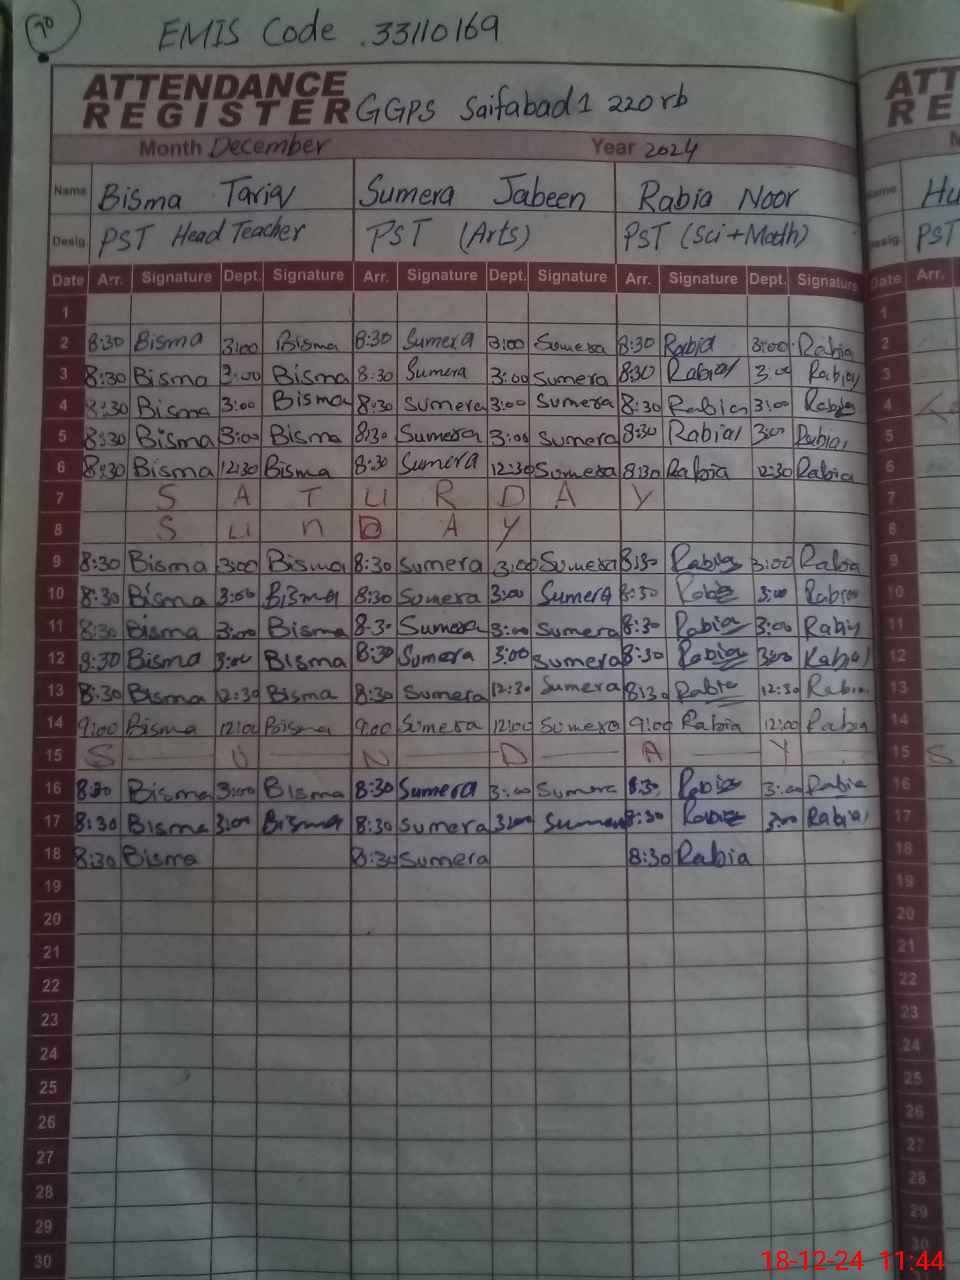 90
EMIS Code .33110169
ATTENDANCE
REGISTER GGPS Saifabad 1 220 rb
Month December Year 2024
Name Bisma Tariq Sumera Jabeen Rabia Noor
Desig. PST Head Teacher PST (Arts) PST (Sci+Math)
Date Arr. Signature Dept. Signature Arr. Signature Dept. Signature Arr. Signature Dept. Signature
1
2 8:30 Bisma 3:00 Bisma 8:30 Sumera 3:00 Sumera 8:30 Rabia 3:00 Rabia
3 8:30 Bisma 3:00 Bisma 8:30 Sumera 3:00 Sumera 8:30 Rabia 3:00 Rabia
4 8:30 Bisma 3:00 Bisma 8:30 Sumera 3:00 Sumera 8:30 Rabia 3:00 Rabia
5 8:30 Bisma 3:00 Bisma 8:30 Sumera 3:00 Sumera 8:30 Rabia 3:00 Rabia
6 8:30 Bisma 12:30 Bisma 8:30 Sumera 12:30 Sumera 8:30 Rabia 12:30 Rabia
7 S A T U R D A Y
8 S U n D A Y
9 8:30 Bisma 3:00 Bisma 8:30 Sumera 3:00 Sumera 8:30 Rabia 3:00 Rabia
10 8:30 Bisma 3:00 Bisma 8:30 Sumera 3:00 Sumera 8:30 Rabia 3:00 Rabia
11 8:30 Bisma 3:00 Bisma 8:30 Sumera 3:00 Sumera 8:30 Rabia 3:00 Rabia
12 8:30 Bisma 3:00 Bisma 8:30 Sumera 3:00 Sumera 8:30 Rabia 3:00 Rabia
13 8:30 Bisma 12:30 Bisma 8:30 Sumera 12:30 Sumera 8:30 Rabia 12:30 Rabia
14 9:00 Bisma 12:00 Bisma 9:00 Sumera 12:00 Sumera 9:00 Rabia 12:00 Rabia
15 S U N D A Y
16 8:30 Bisma 3:00 Bisma 8:30 Sumera 3:00 Sumera 8:30 Rabia 3:00 Rabia
17 8:30 Bisma 3:00 Bisma 8:30 Sumera 3:00 Sumera 8:30 Rabia 3:00 Rabia
18 8:30 Bisma 8:30 Sumera 8:30 Rabia
19
20
21
22
23
24
25
26
27
28
29
30
ATT
RE
Name Hu
Desig. PST
Date Arr.
1
2
3
4
5
6
7
8
9
10
11
12
13
14
15 S
16
17
18
19
20
21
22
23
24
25
26
27
28
29
30
18-12-24 11:44